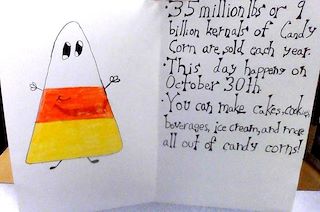 · 35 million lbs or 9
billion kernals of Candy
Corn are sold each year.
· This day happens on
October 30th
· You can make cakes, cookies,
beverages, ice cream, and more
all out of candy corns!